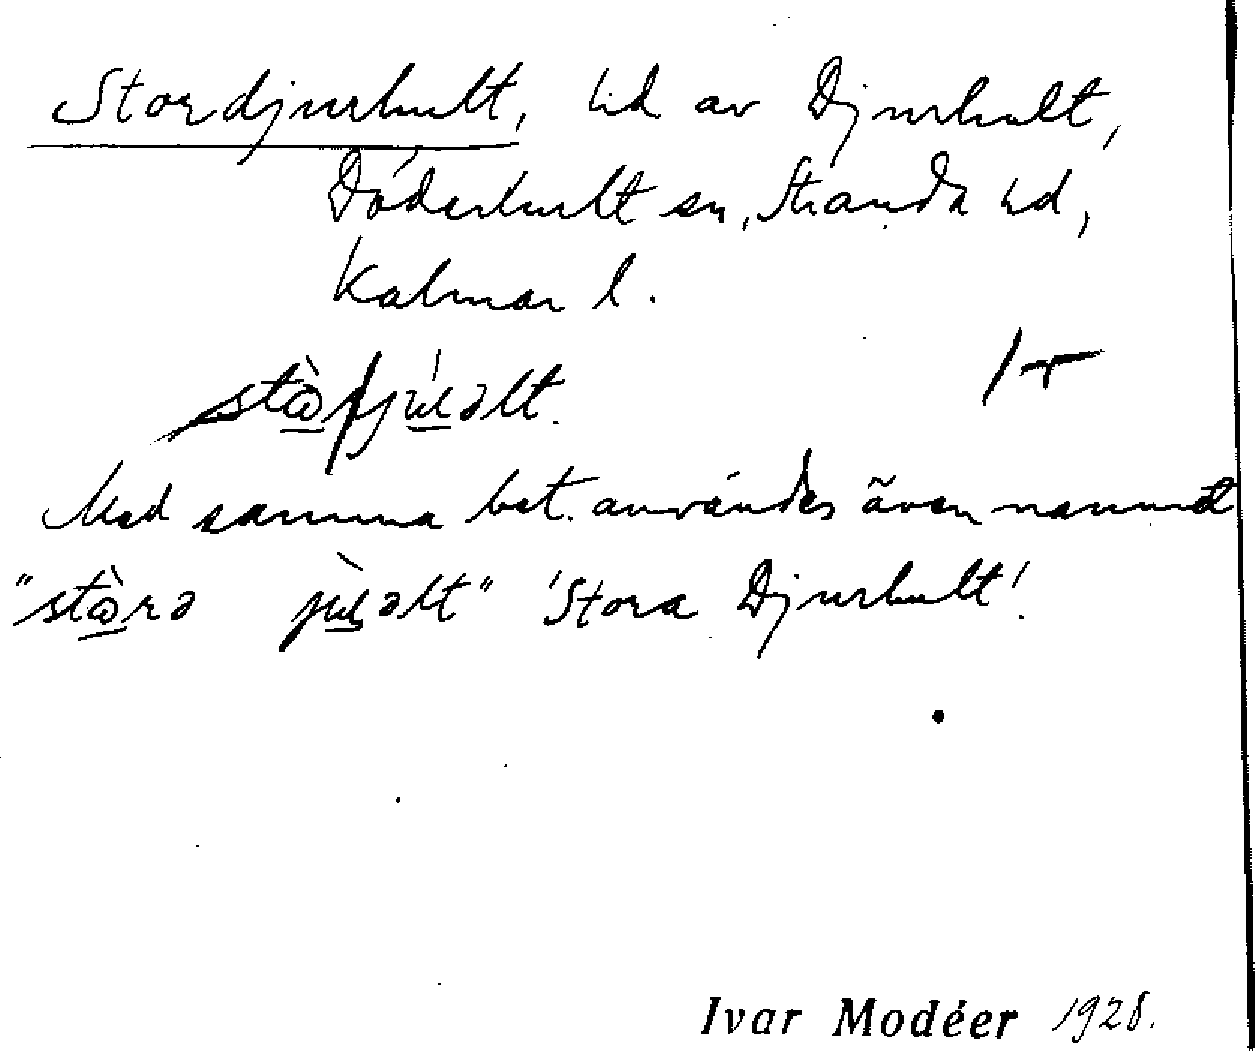 Stordjurhult, hd av Djurhult,
Döderhult sn, Stranda hd,
Kalmar l.
Med samma bet. användes även namnet
'Stora Djurhult'.
Ivar Modéer 1928.